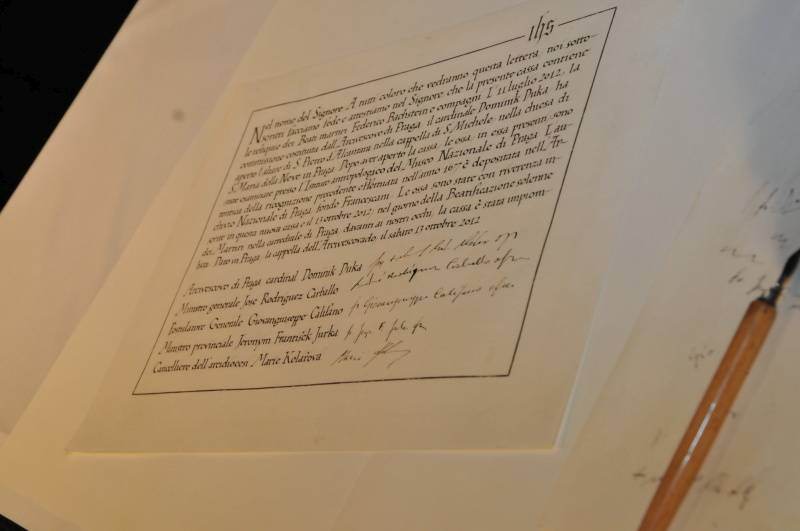 ihs
Nel nome del Signore. A tutti coloro che vedranno questa lettera, noi sotto-
scritti facciamo fede e attestiamo nel Signore, che la presente cassa contiene
le reliquie dei Beati martiri Federico Bachstein e compagni. L' 11 luglio 2012, la
commissione costituita dall'Arcivescovo di Praga, il cardinale Dominik Duka ha
aperto l'altare di S. Pietro d'Alcantara nella cappella di S. Michele, nella chiesa di
S. Maria della Neve in Praga. Dopo aver aperto la cassa, le ossa, in essa presenti, sono
state esaminate presso l'Istituto antropologico del Museo Nazionale di Praga. L'au-
tentica della ricognizione precedente effettuata nell'anno 1677 è depositata nell'Ar-
chivio Nazionale di Praga, fondo Francescani. Le ossa sono state con riverenza in-
serite in questa nuova cassa e il 13 ottobre 2012, nel giorno della Beatificazione solenne
dei Martiri nella cattedrale di Praga, davanti ai nostri occhi, la cassa è stata piomb-
bata. Dato in Praga, la cappella dell'Arcivescovado, il sabato 13 ottobre 2012
Arcivescovo di Praga cardinal Dominik Duka
Ministro generale José Rodríguez Carballo
Postulatore Generale Giovangiuseppe Califano fr Giovangiuseppe Califano ofm
Ministro provinciale Jeroným František Jurka
Cancelliere dell'arcidiocesi Marie Kolářová